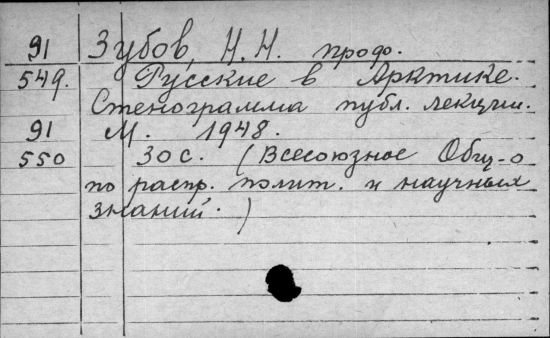 91 Зубов, Н.Н. проф.
549. Русские в Арктике.
Стенограмма публ. лекции.
91 М. 1948.
550 30 с. (Всесоюзное Общ-о
по распр. полит. и научных
знаний.)